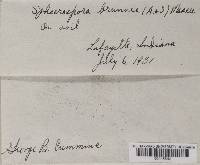 Sphaerospora brunnea (A & S) Massee
On soil
Lafayette, Indiana
July 6, 1931
George B. Cummins